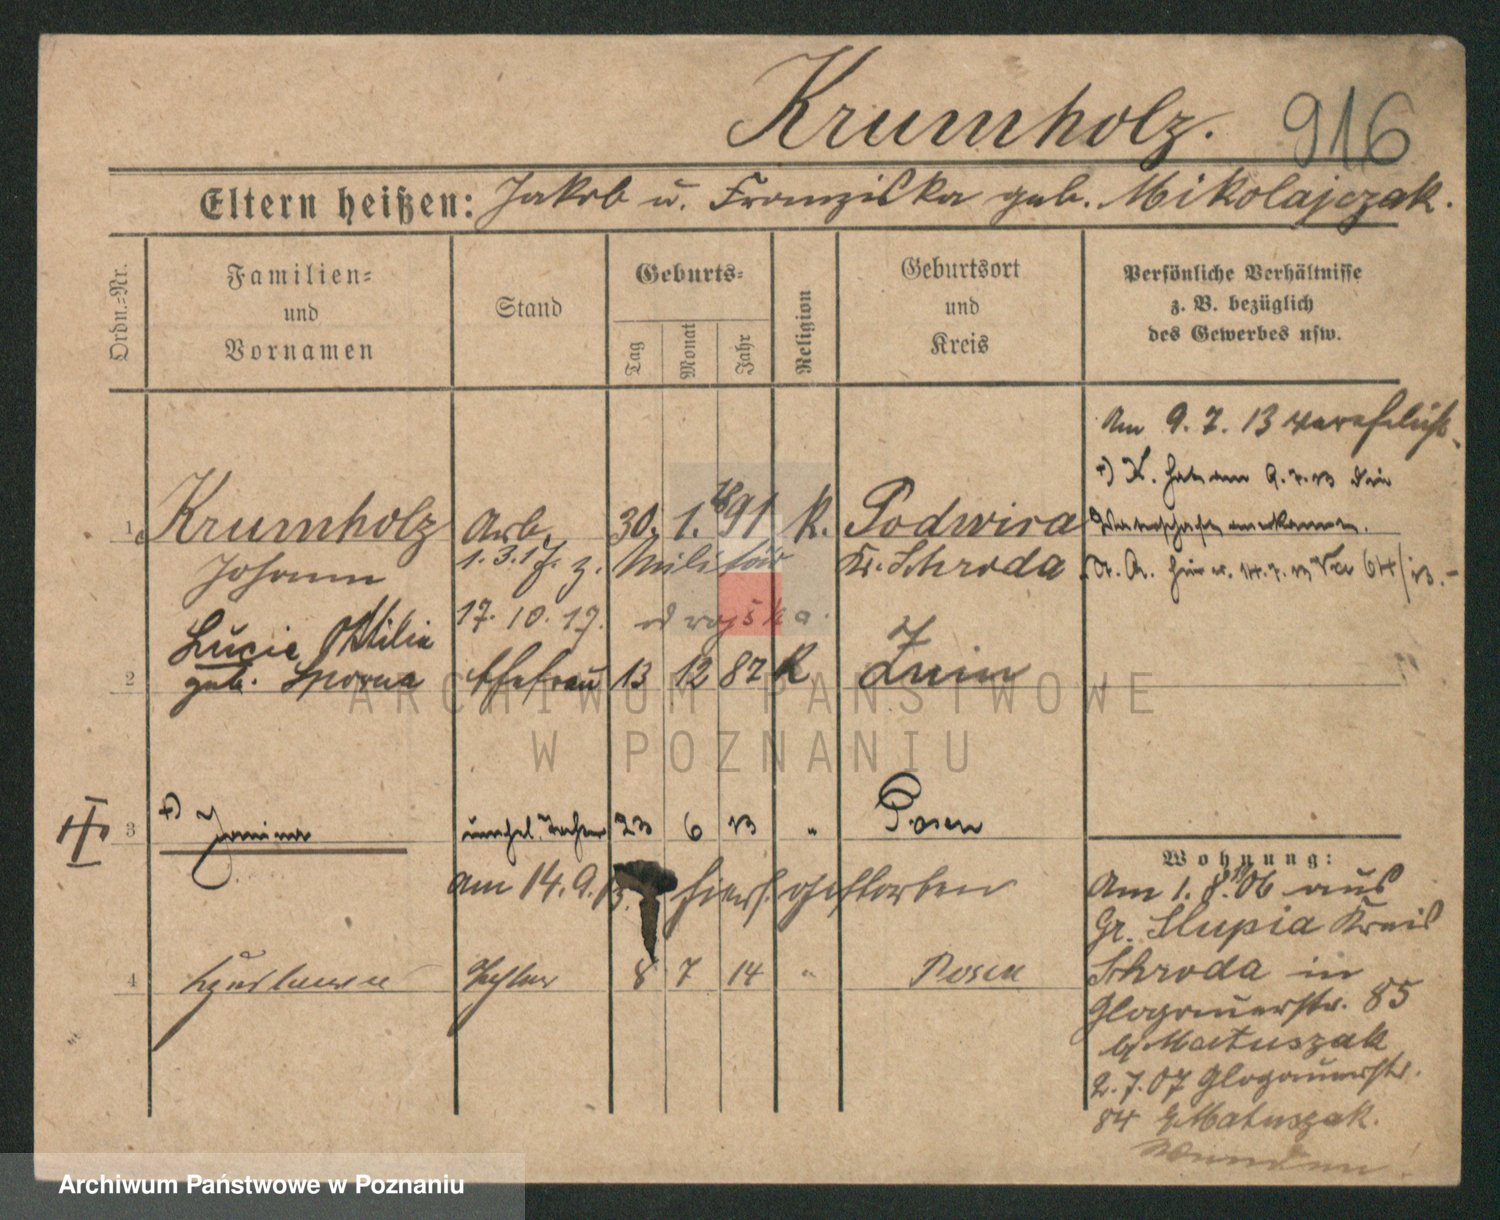 Krumholz. 916
Eltern heißen: Jakob u. Franziska geb. Mikolajczak.
Ordn.-Nr.
Familien-
und
Vornamen
Stand
Geburts-
Tag
Monat
Jahr
Religion
Geburtsort
und
Kreis
Persönliche Verhältnisse
z. B. bezüglich
des Gewerbes usw.
Am 9. 7. 13 verehlicht.
+) K. hat am 9. 7. 13 die
Vaterschaft anerkannt.
1 Krumholz Arb. 30. 1. 1891 K. Podwira
Johann 1. 3. 17. z. Militär Kr. Schroda
17. 10. 17. od wojska.
Lucie Ottilie
2 geb. Ehefrau 13 12 87 K Znin
3 +) Janina unehel. Tochter 23 6 13 " Posen
am 14. 9. 13. hiers. gestorben
4 Tochter 8 7 14 " Posen
Wohnung:
Am 1. 8. 06 aus
Gr. Slupia Kreis
Schroda in
Glogauerstr. 85
b/ Matuszak
2. 7. 07 Glogauerstr.
84 b/ Matuszak.
ARCHIWUM PAŃSTWOWE
W POZNANIU
Archiwum Państwowe w Poznaniu